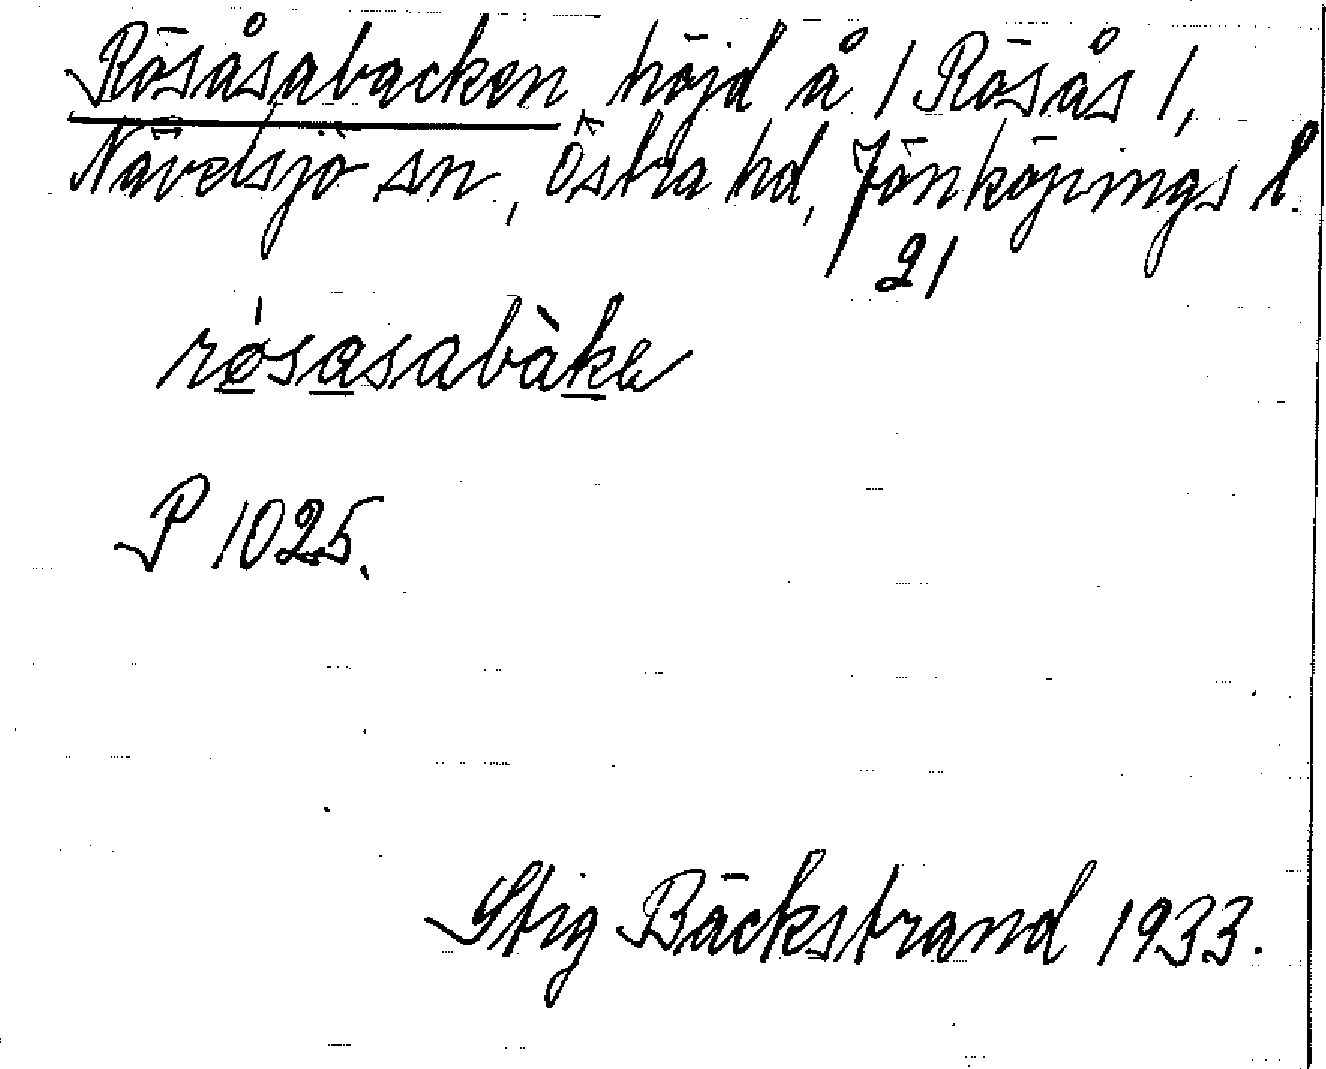 Rösåsabacken höjd å / Rösås /,
Nävelsjö sn, Östra hd, Jönköpings l.
21
rǿ̱sa̱sabàḵe
P 1025.
Stig Bäckstrand 1933.